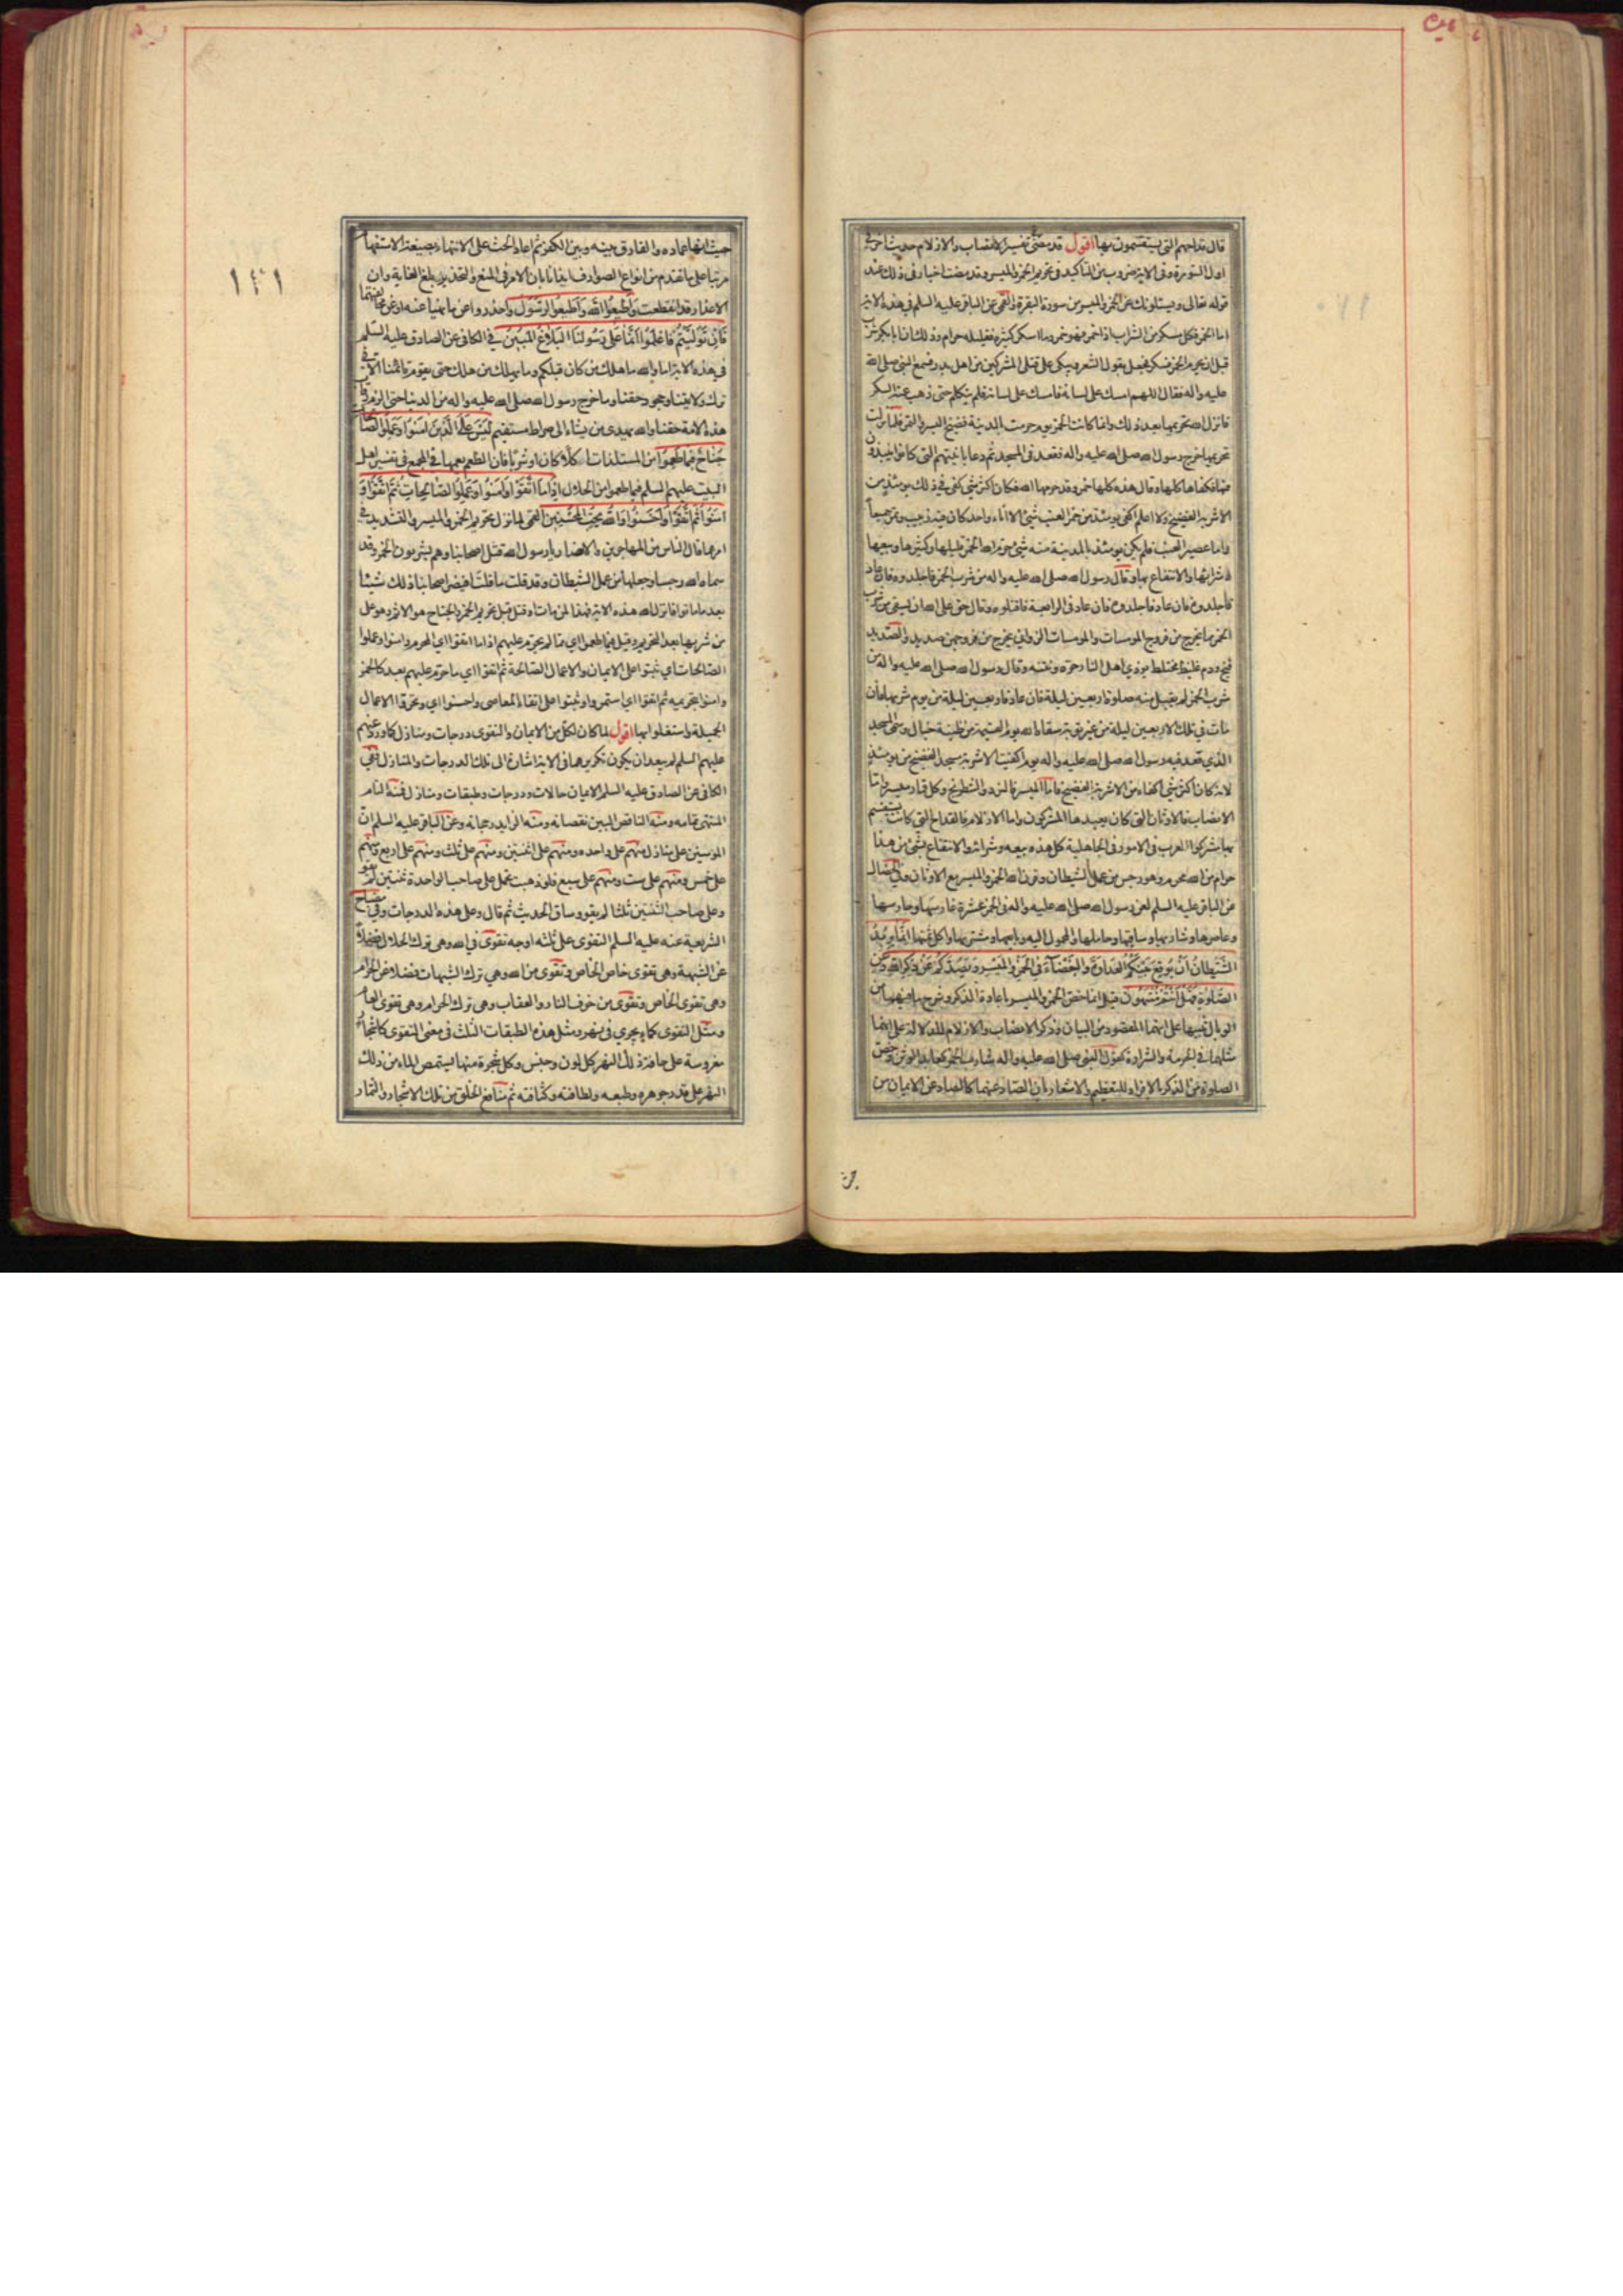 قال قداحهم التى يستقسمون بها اقول قد مضى تفسير الانصاب والازلام حديث اخر فى
اول السورة وفى الاية ضروب من التاكيد فى تحريم الخمر والميسر وقد مضت اخبار فى ذلك عند
قوله تعالى ويسئلونك عن الخمر والميسر من سورة البقرة والقمى عن الباقر عليه السلم فى هذه الاية
اما الخمر فكل مسكر من الشراب اذا خمر فهو خمر وما اسكر كثيره فقليله حرام وذلك ان ابابكر شرب
قبل ان يحرم الخمر فسكر فجعل يقول الشعر ويبكى على قتلى المشركين من اهل بدر فسمع النبى صلى الله
عليه واله فقال اللهم امسك على لسانه فامسك على لسانه فلم يتكلم حتى ذهب عنه السكر
فانزل الله تحريمها بعد ذلك وانما كانت الخمر يوم حرمت بالمدينة فضيخ البسر والتمر فلما نزلت
تحريمها خرج رسول الله صلى الله عليه واله فقعد فى المسجد ثم دعا بانيتهم التى كانوا ينبذون
فيها فكفاها كلها وقال هذه كلها خمر وقد حرمها الله فكان اكثر شئ كفى فى ذلك يومئذ من
الاشربة الفضيخ ولا اعلم اكفى يومئذ من خمر العنب شئ الا اناء واحد كان فيه زبيب وتمر جميعا
واما عصير العنب فلم يكن يومئذ بالمدينة منه شئ حرم الله الخمر قليلها وكثيرها وبيعها
وشرائها والانتفاع بها وقال رسول الله صلى الله عليه واله من شرب الخمر فاجلدوه فان عاد
فاجلدوه فان عاد فاجلدوه فان عاد فى الرابعة فاقتلوه وقال حق على الله ان يسقى من شرب
الخمر مما يخرج من فروج المومسات والمومسات الزوانى يخرج من فروجهن صديد والصديد
قيح ودم غليظ مختلط يوذى اهل النار حره ونتنه وقال رسول الله صلى الله عليه واله من
شرب الخمر لم يقبل منه صلوة اربعين ليلة فان عاد فاربعين ليلة من يوم شربها فان
مات فى تلك الاربعين ليلة من غير توبة سقاه الله يوم القيمة من طينة خبال وسمى المسجد
الذى قعد فيه رسول الله صلى الله عليه واله يوم اكفئت الاشربة مسجد الفضيخ من يومئذ
لانه كان اكثر شئ اكفاه من الاشربة الفضيخ فاما الميسر فالنرد والشطرنج وكل قمار ميسر واما
الانصاب فالاوثان التى كان يعبدها المشركون واما الازلام فالقداح التى كانت يستقسم
بها مشركوا العرب فى الامور فى الجاهلية كل هذه بيعه وشرائه والانتفاع بشئ من هذا
حرام من الله محرم وهو رجس من عمل الشيطان وقرن الله الخمر والميسر مع الاوثان وفى الخصال
عن الباقر عليه السلم لعن رسول الله صلى الله عليه واله فى الخمر عشرة غارسها وحارسها
وعاصرها وشاربها وساقيها وحاملها والمحمول اليه وبايعها ومشتريها واكل ثمنها انما يريد
الشيطان ان يوقع بينكم العداوة والبغضاء فى الخمر والميسر ويصدكم عن ذكر الله وعن
الصلوة فهل انتم منتهون قيل انما خص الخمر والميسر باعادة الذكر وشرح ما فيهما من
الوبال تنبيها على انهما المقصود من البيان وذكر الانصاب والازلام للدلالة على انهما
مثلهما فى الحرمة والشرارة كقول النبى صلى الله عليه واله شارب الخمر كعابد الوثن وخص
الصلوة من الذكر بالافراد للتعظيم والاشعار بان الصاد عنها كالصاد عن الايمان من
حيث انها عماده والفارق بينه وبين الكفر ثم اعاد الحث على الانتهاء بصيغة الاستفهام
مرتبا على ما تقدم من انواع الصوارف ايذانا بان الامر فى المنع والتحذير بلغ الغاية وان
الاعذار قد انقطعت واطيعوا الله واطيعوا الرسول واحذروا عن ما نهيا عنه او عن مخالفتهما
فان توليتم فاعلموا انما على رسولنا البلاغ المبين فى الكافى عن الصادق عليه السلم
فى هذه الاية اما والله ما هلك من كان قبلكم وما يهلك من هلك حتى يقوم قائمنا الا فى
ترك ولايتنا وجحود حقنا وما خرج رسول الله صلى الله عليه واله من الدنيا حتى الزم رقاب
هذه الامة حقنا والله يهدى من يشاء الى صراط مستقيم ليس على الذين امنوا وعملوا الصالحات
جناح فيما طعموا من المستلذات اكلا كان او شربا فان الطعم يعمها فى المجمع فى تفسير اهل
البيت عليهم السلم فيما طعموا من الحلال اذا ما اتقوا وامنوا وعملوا الصالحات ثم اتقوا و
امنوا ثم اتقوا واحسنوا والله يحب المحسنين القمى لما نزل تحريم الخمر والميسر والتشديد فى
امرهما قال الناس من المهاجرين والانصار يا رسول الله قتل اصحابنا وهم يشربون الخمر وقد
سماه الله رجسا وجعلها من عمل الشيطان وقد قلت ما قلت افيضر اصحابنا ذلك شيئا
بعد ما ماتوا فانزل الله هذه الاية فهذا لمن مات او قتل قبل تحريم الخمر والجناح هو الاثم وهو على
من شربها بعد التحريم وقيل فيما طعموا اى مما لم يحرم عليهم اذا ما اتقوا اى المحرم وامنوا وعملوا
الصالحات اى ثبتوا على الايمان والاعمال الصالحة ثم اتقوا اى ما حرم عليهم بعد كالخمر
وامنوا بتحريمه ثم اتقوا اى استمروا وثبتوا على اتقاء المعاصى واحسنوا اى وتحروا الاعمال
الجميلة واشتغلوا بها اقول لما كان لكل من الايمان والتقوى درجات ومنازل كما ورد عنهم
عليهم السلم لم يبعد ان يكون تكريرهما فى الاية اشارة الى تلك الدرجات والمنازل ففى
الكافى عن الصادق عليه السلم الايمان حالات ودرجات وطبقات ومنازل فمنه التام
المنتهى تمامه ومنه الناقص المبين نقصانه ومنه الزايد رجحانه وعن الباقر عليه السلم ان
المومنين على منازل منهم على واحده ومنهم على اثنتين ومنهم على ثلث ومنهم على اربع ومنهم
على خمس ومنهم على ست ومنهم على سبع فلو ذهبت تحمل على صاحب الواحدة ثنتين لم يقو
وعلى صاحب الثنتين ثلثا لم يقو وساق الحديث ثم قال وعلى هذه الدرجات وفى مصباح
الشريعية عنه عليه السلم التقوى على ثلثه اوجه تقوى فى الله وهى ترك الحلال فضلا
عن الشبهة وهى تقوى خاص الخاص وتقوى من الله وهى ترك الشبهات فضلا عن الحرام
وهى تقوى الخاص وتقوى من خوف النار والعقاب وهى ترك الحرام وهى تقوى العام
ومثل التقوى كماء يجرى فى نهر ومثل هذه الطبقات الثلث فى معنى التقوى كاشجار
مغروسة على حافة ذلك النهر كل لون وجنس وكل شجرة منها يستمص الماء من ذلك
النهر على قدر جوهره وطعمه ولطافته وكثافته ثم منافع الخلق من تلك الاشجار والثمار